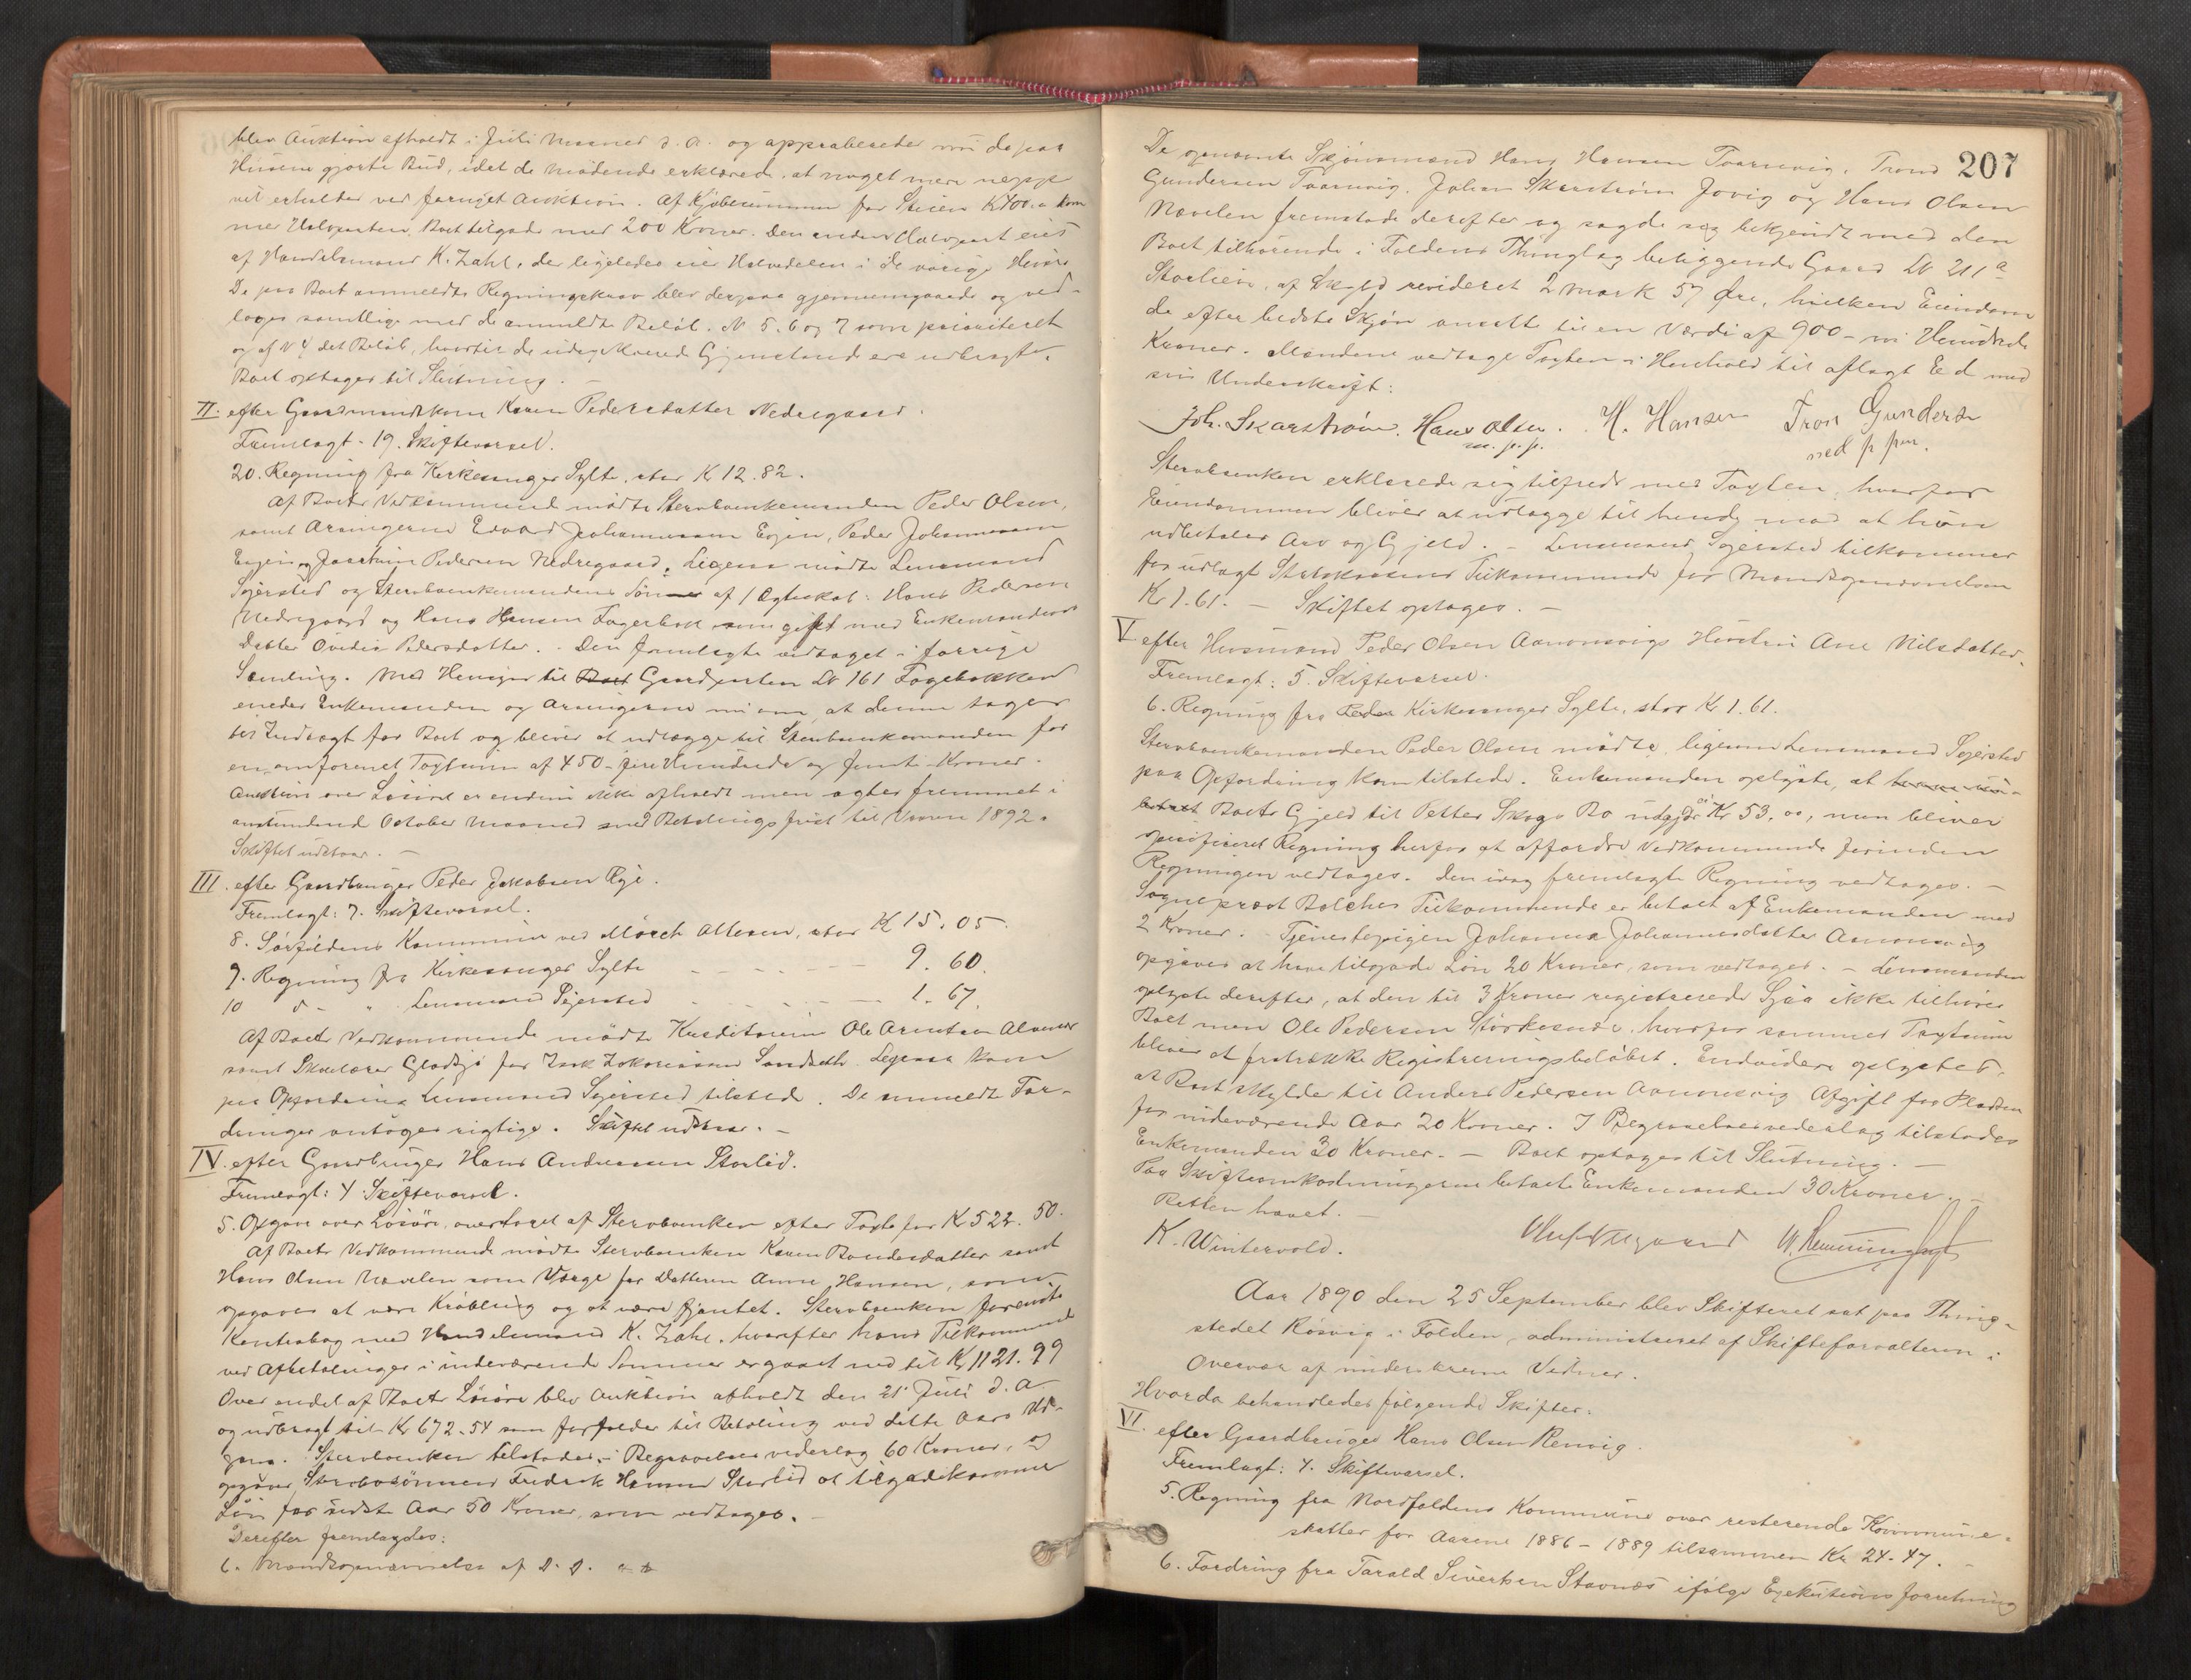 blev Auktion afholdt i Juli Maaned d. A. og approberedes nu de paa
Husene gjorte Bud, idet de Mødende erklærede, at noget mere neppe
vil erholdes ved fornyet Auktion. Af Kjøbesummen for Stuen Kr 400.00 kom
mer Halvparten Boet tilgode med 200 Kroner. Den anden Halvpart eies
af Handelsmand K. Zahl, der ligeledes eier Halvedelen i de øvrige Huse.
De paa Boet anmeldte Regningskrav blev derpaa gjennemgaaede og ved-
toges samtlige med de anmeldte Beløb. N 5. 6 og 7 som prioriteret
og af N 4 det Beløb, hvortil de Gjenstande ere udbragte.
Boet optages til Slutning. –
II. efter Gaardmandskone Karen Pedersdatter Nedregaard.
Fremlagt – 19. Skiftevarsel.
20. Regning fra Kirkesanger Sylte, stor K 12.82.
Af Boets Vedkommende mødte Stervboenkemanden Peder Olsen,
samt Arvingerne Edvard Johannessen Evjen, Peder Johannessen
Evjen og Joachim Pedersen Nedregaard. Ligesaa mødte Lensmand
Sejersted og Stervboenkemandens Søn af 1 Ægteskab: Hans Pedersen
Nedregaard og Hans Hansen Fagerbak som gift med Enkemandens
Datter Ovedia Pedersdatter. – Den fremlagte vedtaget i forrige
Samling. Med Hensyn til Boet Gaardparten LN 161 Fagerbakken
enedes Enkemanden og Arvingerne nu om, at denne tages
til Indtægt for Boet og bliver at udlægge til Stervboenkemanden for
en omforenet Taxtsum af 450 – fire Hundrede og femti – Kroner.
Auktion over Løsøret er endnu ikke afholdt men agtes fremmet i
anstundende October Maaned med Betalingsfrist til Vaaren 1892.
Skiftet udstaar. –
III. efter Gaardbruger Peder Jakobsen Rye.
Fremlagt: 7. Skiftevarsel.
8. Sørfoldens Kommune ved Mørch Ottesen, stor K 15.05.
9. Regning fra Kirkesanger Sylte – – – – – 9.60.
10 d – " Lensmand Sejersted – – – – – 1.67.
Af Boets Vedkommende mødte Kreditorerne Ole Arntsen
samt Skolelærer for Isak Zakariassen Ligesaa kom
paa Opfordring Lensmand Sejersted tilstede. De anmeldte For-
dringer antoges rigtige. Skiftet udstaar. –
IV. efter Gaardbruger Hans Andreassen Storlid.
Fremlagt: 4. Skiftevarsel.
5. Opgave over Løsøre, overtaget af Stervboenken efter Taxt for Kr 522.50.
Af Boets Vedkommende mødte Stervboenken Karen samt
Hans Olsen Nævelen som Værge for Datteren Anne Hansen, som
opgaves at være Krøbling og at være fjantet. Stervboenken foreviste
Kontrabog med Handelsmand K. Zahl, hvorefter hans Tilkommende
ved Afbetalinger i indeværende Sommer er gaaet ned til Kr 1121.99
Over endel af Boets Løsøre blev Auktion afholdt den 21 Juli d. A.
og udbragt til Kr 672.54 som forfalder til Betaling ved dette Aars Ud-
gang. Stervboenken tilstodes i Begravelsesvederlag 60 Kroner, og
opgaves Stervbosønnen Fredrik Hansen Storlid at tilgodekomme
Løn for sidste Aar 50 Kroner, som vedtages. –
Derefter fremlagdes:
6. Mandsopnævnelse af D. D.
207
De opnævnte Skjønsmænd Hans Hansen Tvarnvig, Trond
Gundersen Tvarnvig, Johan Skarstrøm Jovig og Hans Olsen
Nævelen fremstode derefter og sagde sig bekjendt med den
Boet tilhørende i Foldens Thinglag beliggende Gaard LN 211 a
Storlien, af Skyld revideret 2 Mark 57 Øre, hvilken Eiendom
de efter bedste Skjøn ansatte til en Værdi af 900 – ni Hundrede
Kroner. Mændene vedtage Taxten i Henhold til aflagt Ed med
sin Underskrift:
Joh. Skarstrøm. Hans Olsen. H. Hansen Tron Gunders
m. p. p. med p pen.
Stervboenken erklærede sig tilfreds med Taxten, hvorfor
Eiendommen bliver at udlægge til hende mod at hun
udbetaler Arv og Gjeld. – Lensmand Sejersted tilkommer
for udlagt Tilkommende for Mandsopnævnelsen
Kr 1.61. – Skiftet optages. –
V. efter Husmand Peder Olsen Aanonsvigs Hustru Ane Nilsdatter.
Fremlagt: 5. Skiftevarsel.
6. Regning fra Peder Kirkesanger Sylte, stor Kr 1.61.
Stervboenkemanden Peder Olsen mødte, ligesom Lensmand Sejersted
paa Opfordring kom tilstede. Enkemanden oplyste, at
Boets Gjeld til Petter Skogs Bo udgjør Kr 53.00, men bliver
specificeret Regning herfor at affordre Vedkommende forinden
Regningen vedtages. Den idag fremlagte Regning vedtages. –
Sogneprest Balches Tilkommende er betalt af Enkemanden med
2 Kroner. – Tjenestepigen Johanna Johannesdatter Aanonsvig
opgaves at have tilgode Løn 20 Kroner, som vedtages. – Lensmanden
oplyste derefter, at den til 3 Kroner registrerede Sjaa ikke tilhører
Boet men Ole Pedersen Størkesnes, hvorfor sammes Taxtsum
bliver at fratrække Registreringsbeløbet. Endvidere oplystes,
at Boet skylder til Anders Pedersen Aanonsvig Afgift for Pladsen
for indeværende Aar 20 Kroner. I Begravelsesvederlag tilstodes
Enkemanden 30 Kroner. – Boet optages til Slutning. –
Paa Skifteomkostningerne betalte Enkemanden 30 Kroner. –
Retten hævet. –
K. Wintervold.
Aar 1890 den 25 September blev Skifteret sat paa Thing-
stedet Røsvig i Folden, administreret af Skifteforvalteren i
Overvær af underskrevne Vidner.
Hvorda behandledes følgende Skifter:
VI. efter Gaardbruger Hans Olsen Renvig.
Fremlagt: 4. Skiftevarsel.
5. Regning fra Nordfoldens Kommune over resterende Kommune-
skatter for Aarene 1886 – 1889 tilsammen Kr 24.47. –
6. Fordring fra Tarald Sivertsen Stavnæs ifølge Exekutionsforretning